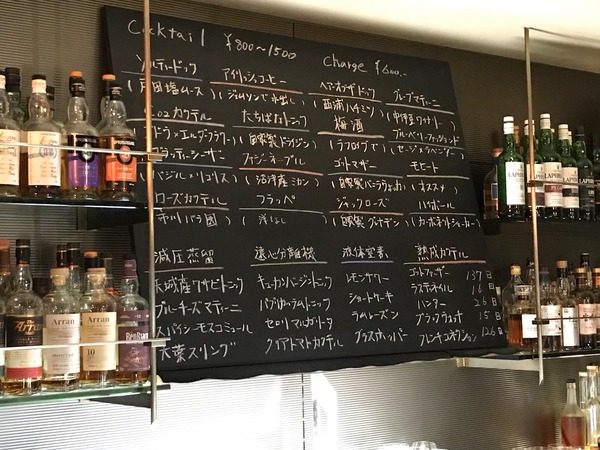 Cocktail ¥800〜1500 Charge ¥600-
ソルティードック アイリッシュコーヒー ヘアーオブザドッグ グレープマティーニ
(戸田塩ムース) (ジェムソンで水出し) (西浦ハチミツ) (中伊豆ワイナリー)
カクテル たちばなトニック 梅酒 ブルーベリーファッションド
エルダーフラワー) (自家製ドライジン) (ラフロイグで) (セージ×ラベンダー)
シーザー ファジーネーブル ゴットマザー モヒート
(バジル× (沼津産ミカン) (自家製バニラウォッカ) (オススメ)
ローズカクテル フラッペ ジャックローズ ハイボール
バラ園) (洋なし) (自家製グレナデン) (カーボネートショーカー)
減圧蒸留 遠心分離機 液体窒素 熟成カクテル
天城産ワサビトニック キュウカンバージントニック レモンサワー ゴットファーザー 137日
ブルーチーズマティーニ パプリカラムトニック ショートケーキ ラスティネイル 16日
スパイシーモスコミュール セロリマルガリータ ラムレーズン ハンター 26日
大葉スリング クリアトマトカクテル グラスホッパー フレンチコネクション 126日
Arran
Arran
LAPHROAIG